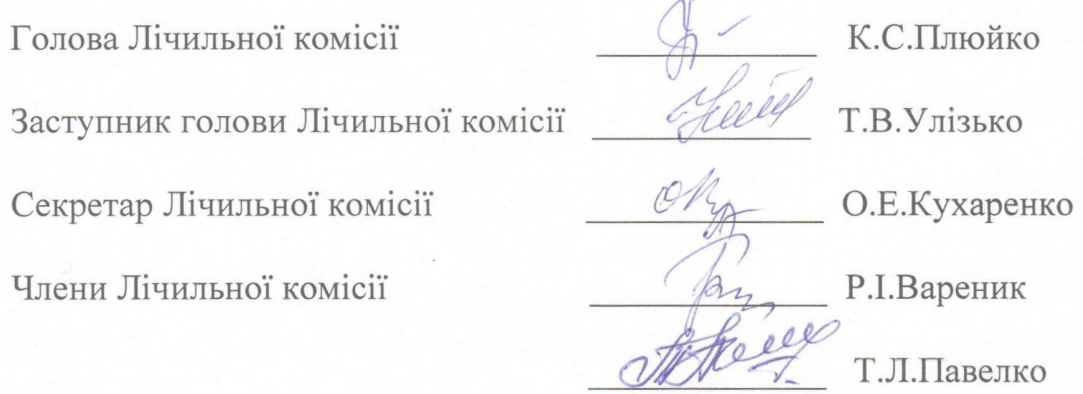 Голова Лічильної комісії К.С.Плюйко
Заступник голови Лічильної комісії Т.В.Улізько
Секретар Лічильної комісії О.Е.Кухаренко
Члени Лічильної комісії Р.І.Вареник
Т.Л.Павелко